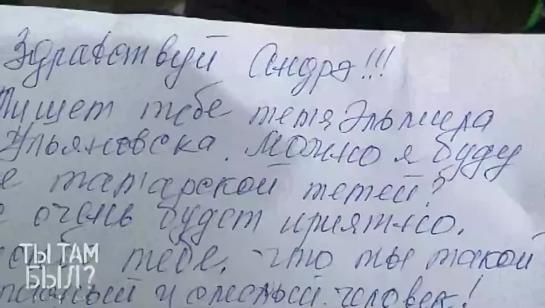 Здравствуй Андрэ!!!
Пишет тебе тетя Эльмира
Ульяновска. Можно я буду
е татарской тетей?
очень будет приятно.
тебе, что ты такой
и смелый человек!
ТЫ ТАМ
БЫЛ?